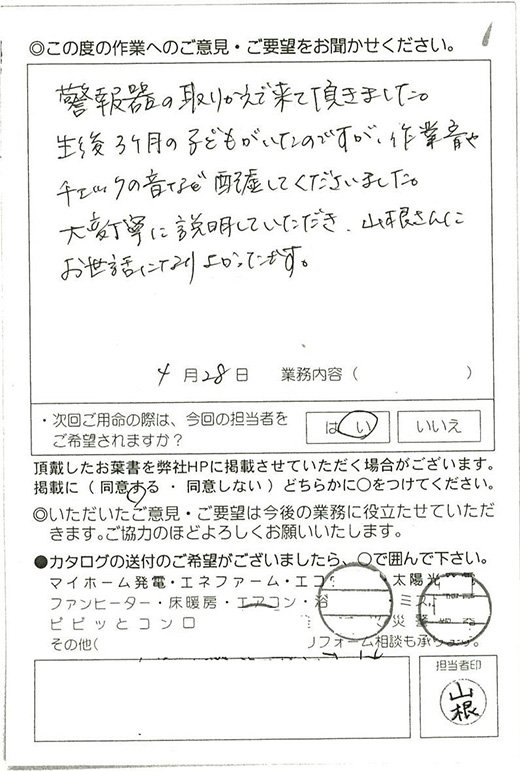 ◎この度の作業へのご意見・ご要望をお聞かせください。
警報器の取りかえで来て頂きました。
生後3ヶ月の子どもがいたのですが、作業音や
チェックの音など配慮してくださいました。
大変丁寧に説明していただき、山根さんに
お世話になりよかったです。
4月28日 業務内容( )
・次回ご用命の際は、今回の担当者を
ご希望されますか?
はい いいえ
頂戴したお葉書を弊社HPに掲載させていただく場合がございます。
掲載に(同意する・同意しない)どちらかに○をつけてください。
◎いただいたご意見・ご要望は今後の業務に役立たせていただ
きます。ご協力のほどよろしくお願いいたします。
●カタログの送付のご希望がございましたら、○で囲んで下さい。
マイホーム発電・エネファーム・エコ 太陽光
ファンヒーター・床暖房・エアコン・浴 ミス
ピピッとコンロ 災警
その他( リフォーム相談も承
担当者印
山根